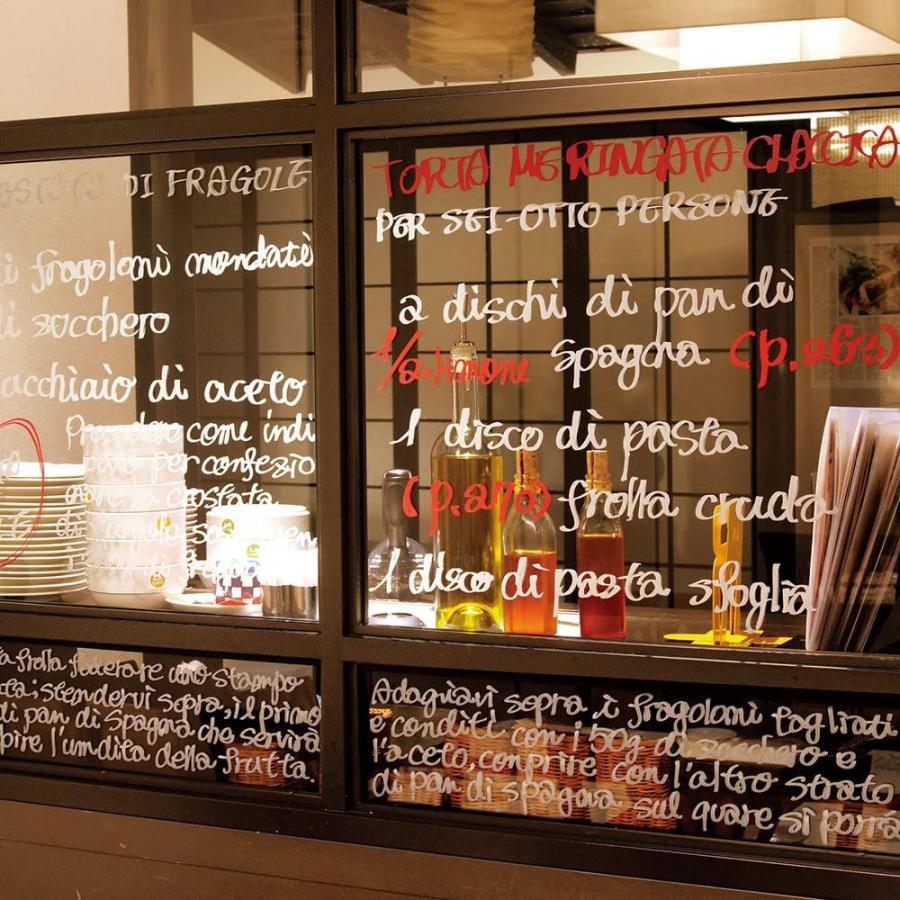 DI FRAGOLE
fragoloni mondate
di zucchero
acchiaio di aceto
come indi
per confezio
crostata
TORTA MERINGATA CLACCICA
PER SEI-OTTO PERSONE
2 dischi di pan di
1/2 limone spagna (p.263)
1 disco di pasta
(p.270) frolla cruda
1 disco di pasta sfoglia
a frolla foderare uno stampo
ta; stendervi sopra, il primo
di pan di spagna che servirà
pire l'umdita della frutta.
Adagiavi sopra i fragoloni tagliati
e conditi con i 50g di zucchero e
l'aceto, conprire con l'altro strato
di pan di spagna sul quare si porrà